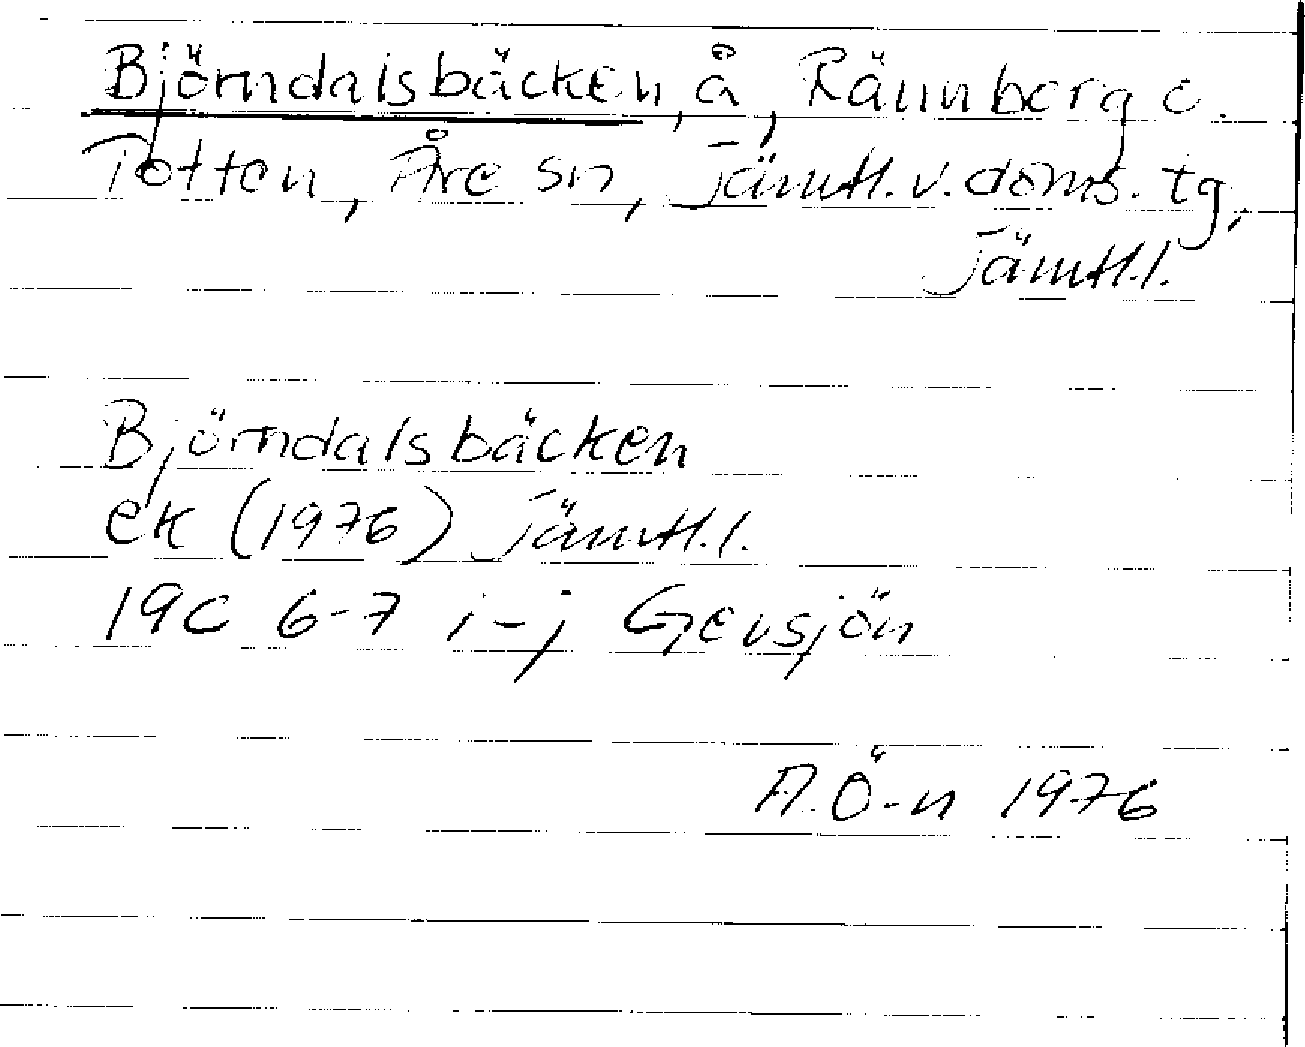 Björndalsbäcken, å, Rännberg o.
Totten, Åre sn, Jämtl. v. doms. tg,
Jämtl. l.
Björndalsbäcken
ek (1976) Jämtl. l.
19C 6-7 i-j Gevsjön
A. Ö-n 1976